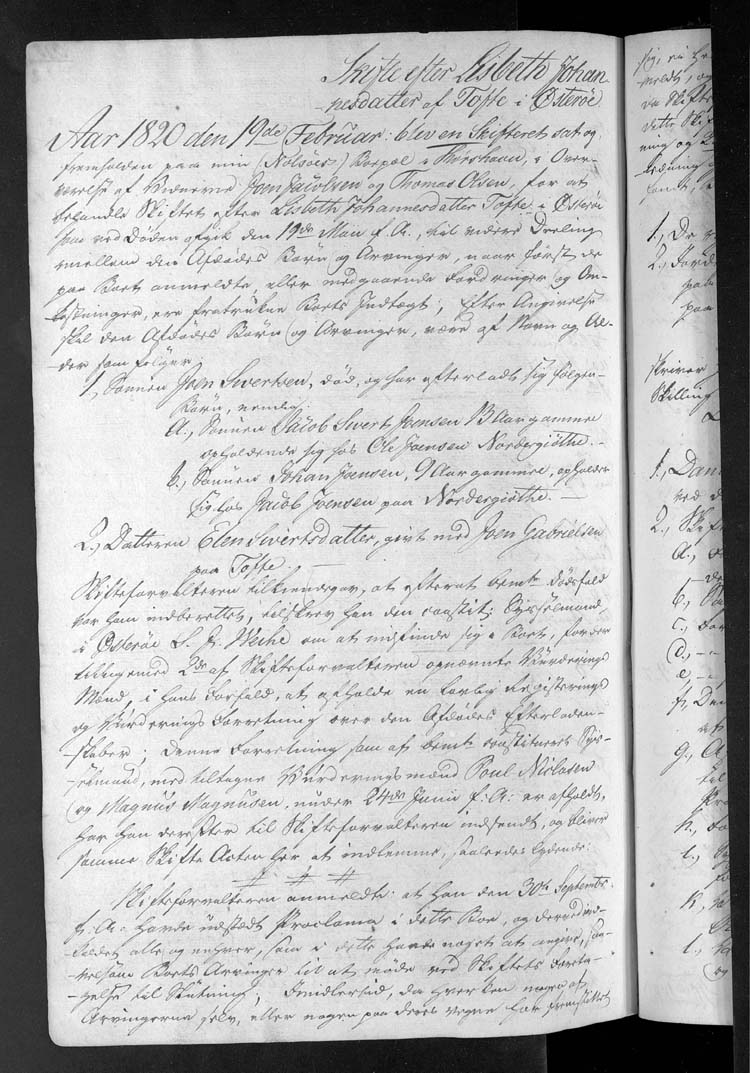 Skifte efter Lisbeth Johan-
-nesdatter af Tofte i Österöe
Aar 1820 den 19de Februar: blev en Skifteret sat og
fremholden paa min (Nolsöes) Bopæl i Thorshavn, i Over-
værelse af Vidnerne Joen Jacobsen og Thomas Olsen, for at
behandle Skiftet efter Lisbeth Johannesdatter Tofte i Österöe
som ved Döden afgik den 19de Maii f. A., til videre Deeling
imellem den Afdödes Börn og Arvinger, naar först de
paa Boet anmeldte, eller medgaaende Fordringer og Om-
kostninger, ere fratrukne Boets Indtægt; Efter Angivelse
skal den Afdödes Börn og Arvinger, være af Navn og Al-
-der som fölger:
1, Sönnen Joen Swertsen, död, og har efterladt sig fölgen-
Börn, nemlig:
a., Sönnen Jacob Swert Joensen 13 Aar gammel
opholdende sig hos Ole Joensen Nordergiöthe. -
b., Sönnen Johan Joensen, 9 Aar gammel, opholder
sig hos Jacob Joensen paa Nordergiöthe. -
2., Datteren Elen Swertsdatter, givt med Joen Gabrielsen
paa Tofte. -
Skifteforvalteren tilkiendegav, at efterat bemte Dödsfald
var ham indberettet, tilskrev han den constit: Sysselmand,
i Österöe S. Fr. Weihe om at indfinde sig i Boet, for der
tilligemed 2de af Skifteforvalteren opnævnte Vurderings
Mænd, i hans Forfald, at afholde en lovlig Registerings
og Vurderings Forretning over den Afdödes Efterladen-
-skaber; denne Forretning som af bemte constitueret Sys-
-selmand, med tiltagne Vurderingsmænd Poul Niclasen
og Magnus Magnusen, under 24de Junii f: A: er afholdt,
har han derefter til Skifteforvalteren indsendt, og bliver
samme Skifte Acten her at indlemme, saaledes lydende:
# # #
Skifteforvalteren anmeldte: at han den 30te Septembr.
f: A: havde udstædt Proclama i dette Boe, og derved ind-
kaldet alle og enhver, som i dette havde noget at angive, saa-
velsom Boets Arvinger til at möde ved Skiftets Foreta-
-gelse til Slutning; Imidlertid, da hverken nogen af
Arvingerne selv, eller nogen paa deres vegne har fremstillet